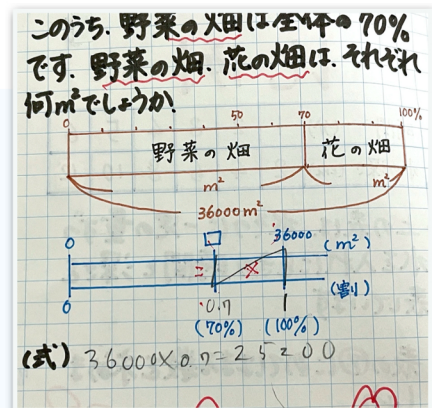 このうち、野菜の畑は全体の70%
です。野菜の畑、花の畑は、それぞれ
何m²でしょうか。
0 50 70 100%
野菜の畑 花の畑
m² m²
36000m²
0 □ 36000 (m²)
= ×
0 0.7 1 (割)
(70%) (100%)
(式) 36000×0.7=25200